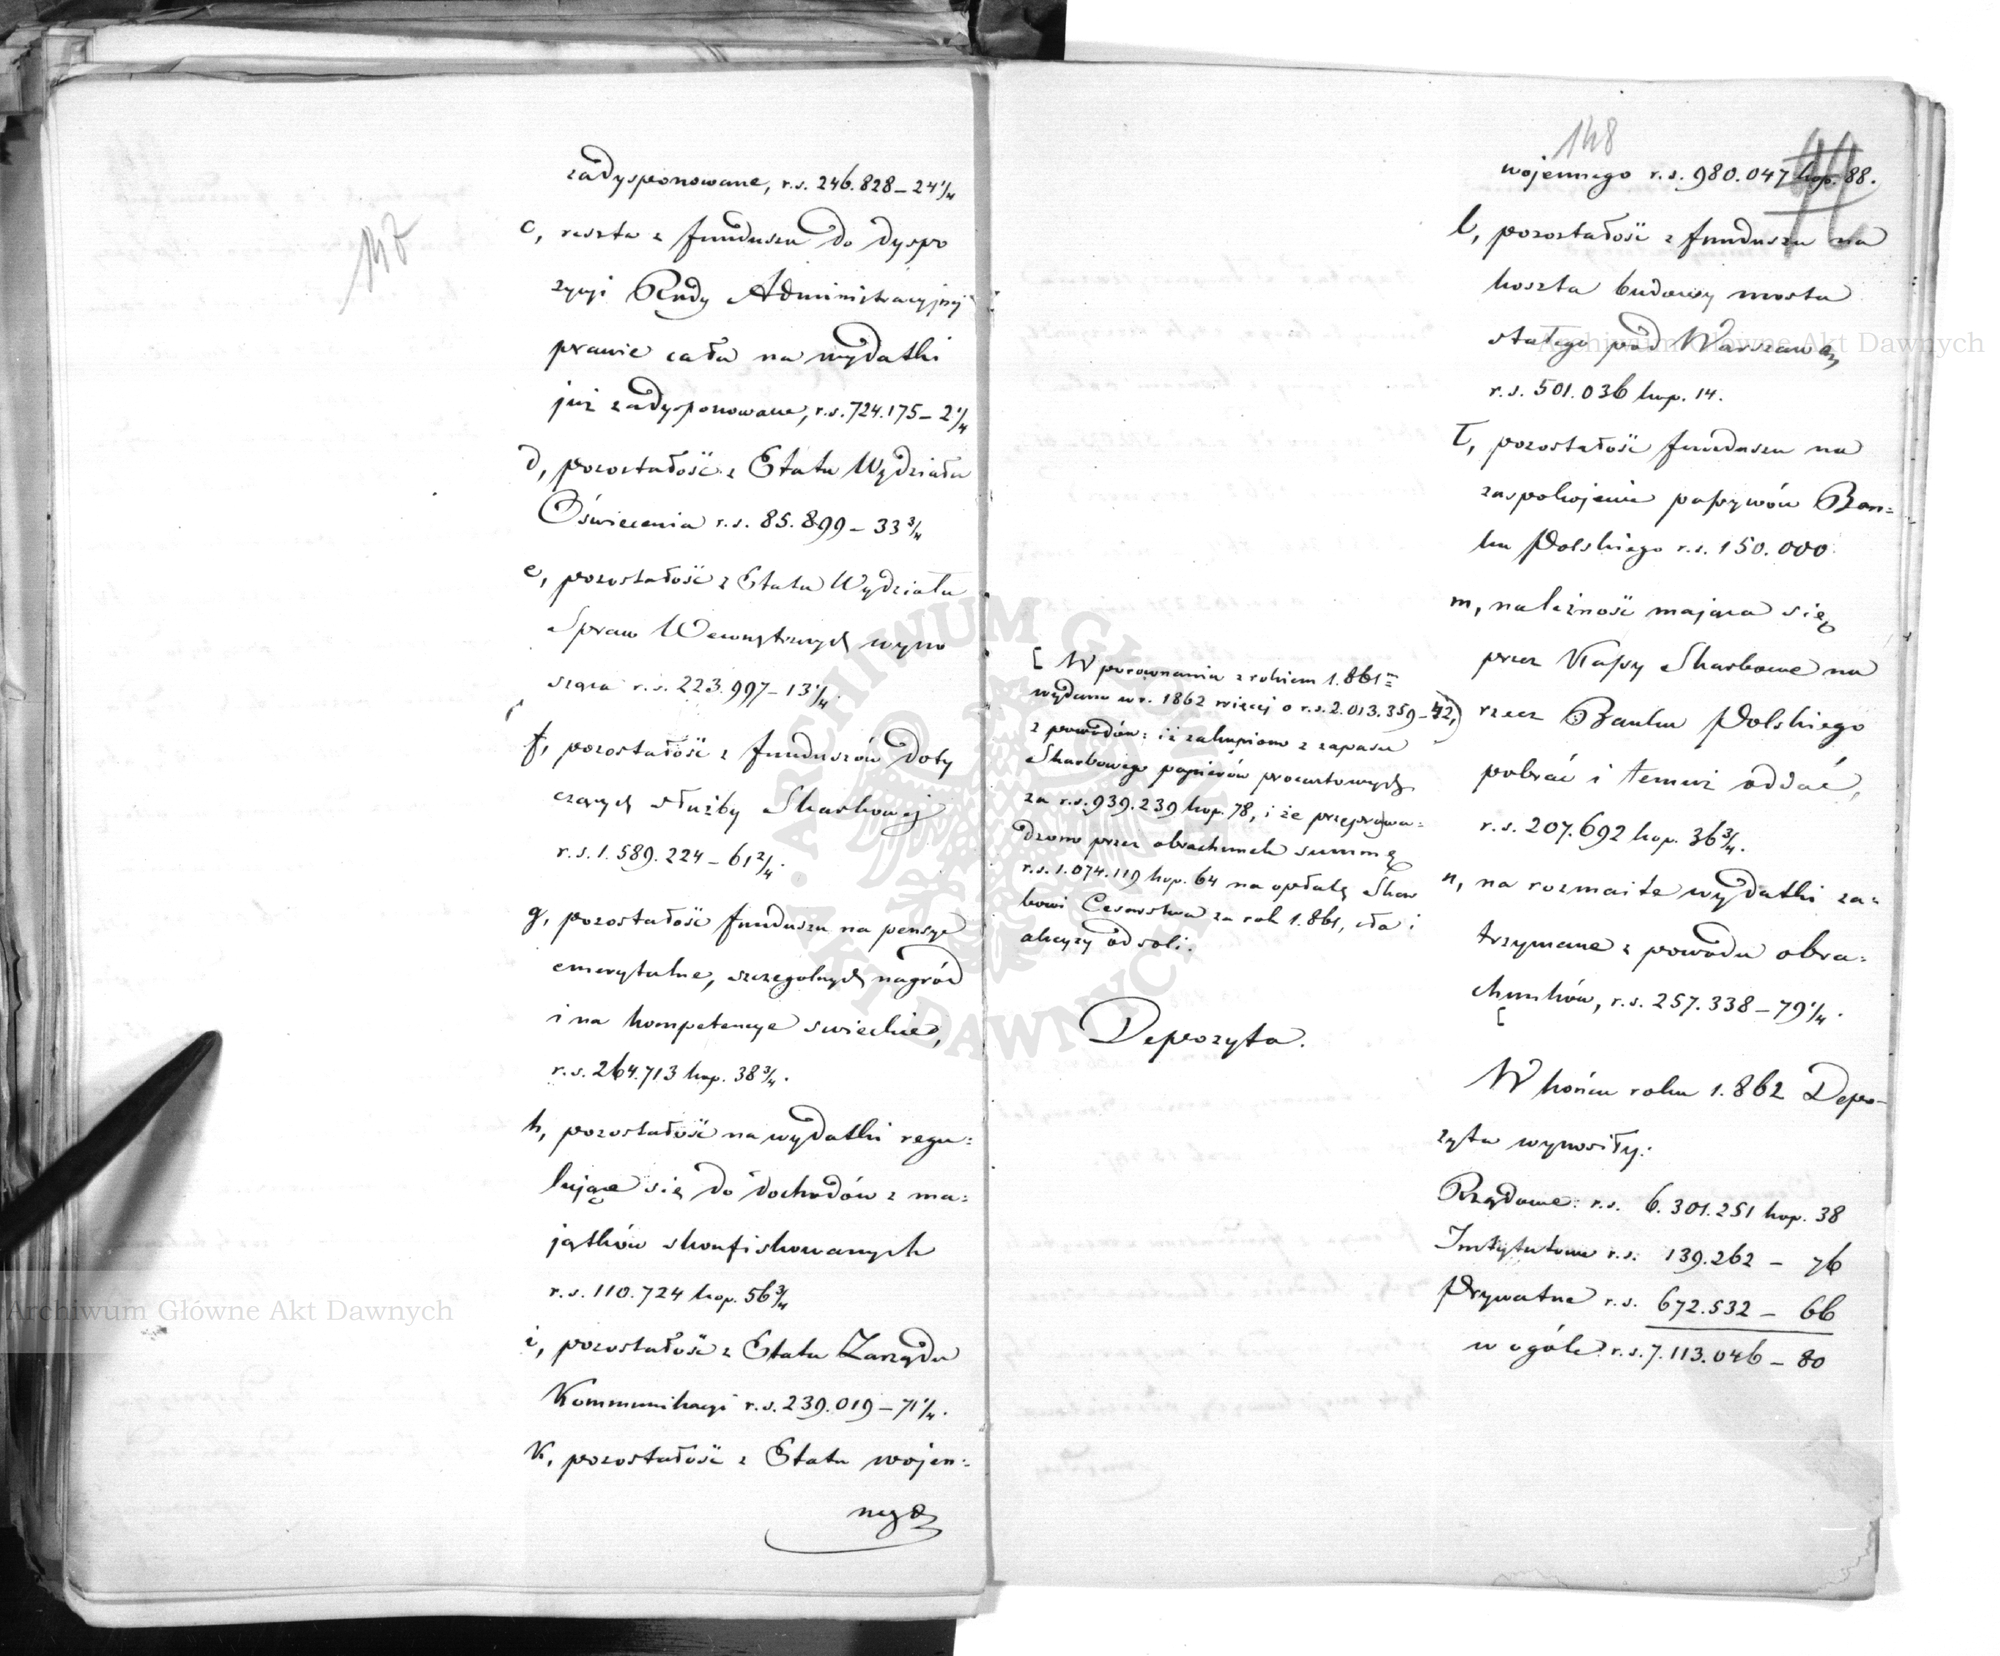 147
zadysponowane, r.s. 246.828 – 24 1/4
c, reszta z funduszu do dyspo
zycyi Rady Administracyjnej
prawie cała na wydatki
już zadysponowane, r.s. 724.175 – 2 1/4
d, pozostałość z Etatu Wydziału
Oświecenia r.s. 85.899 – 33 3/4
e, pozostałość z Etatu Wydziału
Spraw Wewnętrznych wyno
sząca r.s. 223.997 – 13 1/4.
f, pozostałość z funduszów doty
czących służby Skarbowej
r.s. 1.589.224 – 61 2/4.
g, pozostałość funduszu na pensye
emerytalne, szczególnych nagród
i na kompetencye świeckie,
r.s. 264.713 kop. 38 3/4.
h, pozostałość na wydatki regu=
lujące się do dochodów z ma=
jątków skonfiskowanych
r.s. 110.724 kop. 56 3/4
i, pozostałość z Etatu Zarządu
Kommunikacyi r.s. 239.019 – 71 1/4.
k, pozostałość z Etatu wojen=
nego
148
wojennego r.s. 980.047 kop. 88.
l, pozostałość z funduszu na
koszta budowy mostu
stałego pod Warszawą,
r.s. 501.036 kop. 14.
ł, pozostałość funduszu na
zaspokojenie passywów Ban=
ku Polskiego r.s. 150.000.
m, należność mająca się
przez Kassy Skarbowe na
rzecz Banku Polskiego
pobrać i temuż oddać,
r.s. 207.692 kop. 36 3/4.
n, na rozmaite wydatki za=
trzymane z powodu obra=
chunków, r.s. 257.338 – 79 1/4.
[ W porównaniu z rokiem 1.861m
wydano w r. 1862 więcej o r.s. 2.013.359 – 42,)
z powodów: iż zakupiono z zapasu
Skarbowego papierów procentowych
za r.s. 939.239 kop. 78, i że przeprowa=
dzono przez obrachunek summę
r.s. 1.074.119 kop. 64 na opłatę Skar
bowi Cesarstwa za rok 1.861, cła i
akcyzy od soli.
Depozyta.
W końcu roku 1.862 Depo-
zyta wynosiły:
Rządowe: r.s. 6.301.251 kop. 38
Instytutowe r.s. 139.262 – 76
Prywatne r.s. 672.532 – 66
w ogóle r.s. 7.113.046 – 80
Archiwum Główne Akt Dawnych
Archiwum Główne Akt Dawnych
ARCHIWUM GŁÓWNE AKT DAWNYCH